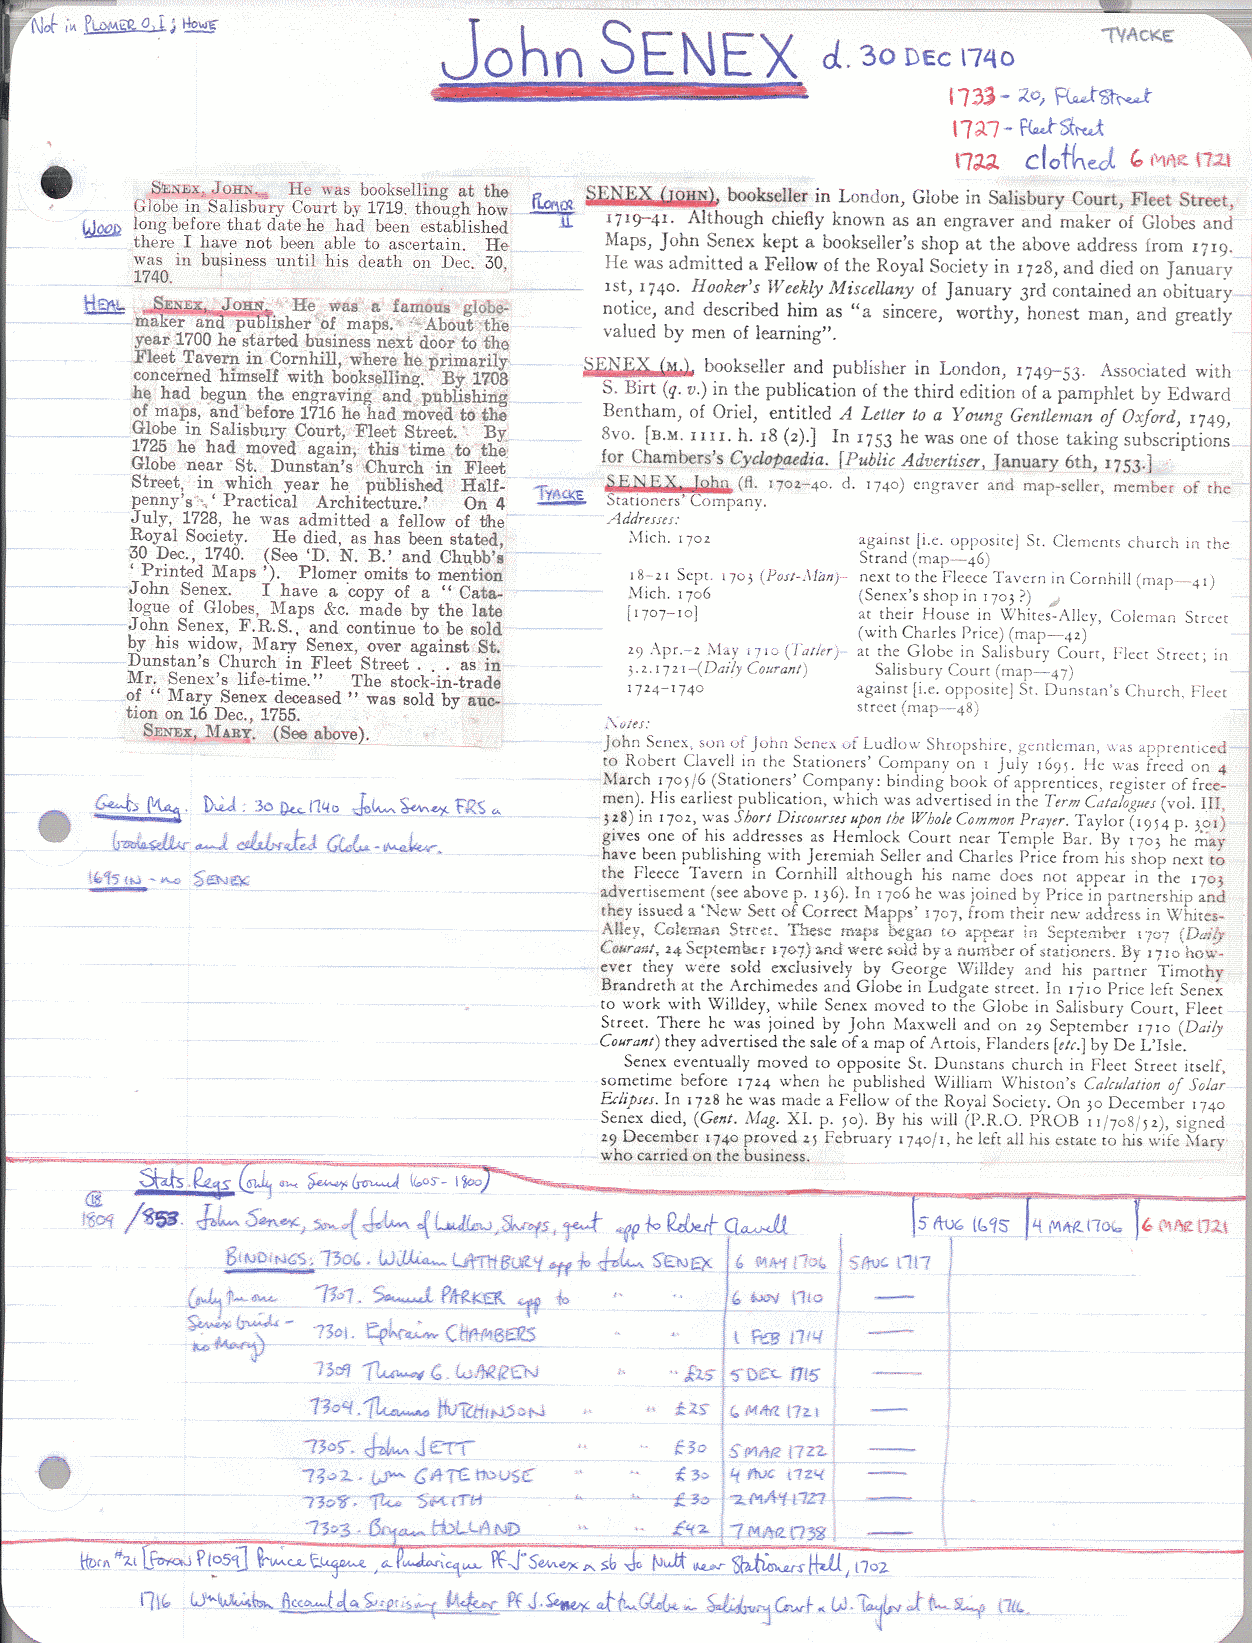 Not in PLOMER O, I ; HOWE
TYACKE
John SENEX d. 30 DEC 1740
1733 - 20, Fleet Street
1727 - Fleet Street
1722 clothed 6 MAR 1721
WOOD
SENEX, JOHN. He was bookselling at the
Globe in Salisbury Court by 1719, though how
long before that date he had been established
there I have not been able to ascertain. He
was in business until his death on Dec. 30,
1740.
HEAL
SENEX, JOHN. He was a famous globe-
maker and publisher of maps. About the
year 1700 he started business next door to the
Fleet Tavern in Cornhill, where he primarily
concerned himself with bookselling. By 1708
he had begun the engraving and publishing
of maps, and before 1716 he had moved to the
Globe in Salisbury Court, Fleet Street. By
1725 he had moved again, this time to the
Globe near St. Dunstan's Church in Fleet
Street, in which year he published Half-
penny's ' Practical Architecture.' On 4
July, 1728, he was admitted a fellow of the
Royal Society. He died, as has been stated,
30 Dec., 1740. (See 'D. N. B.' and Chubb's
' Printed Maps '). Plomer omits to mention
John Senex. I have a copy of a " Cata-
logue of Globes, Maps &c. made by the late
John Senex, F.R.S., and continue to be sold
by his widow, Mary Senex, over against St.
Dunstan's Church in Fleet Street . . . as in
Mr. Senex's life-time." The stock-in-trade
of " Mary Senex deceased " was sold by auc-
tion on 16 Dec., 1755.
SENEX, MARY. (See above).
Gents Mag. Died: 30 Dec 1740 John Senex FRS a
bookseller and celebrated Globe-maker.
1695 IN - no SENEX
PLOMER II
SENEX (JOHN), bookseller in London, Globe in Salisbury Court, Fleet Street,
1719-41. Although chiefly known as an engraver and maker of Globes and
Maps, John Senex kept a bookseller's shop at the above address from 1719.
He was admitted a Fellow of the Royal Society in 1728, and died on January
1st, 1740. Hooker's Weekly Miscellany of January 3rd contained an obituary
notice, and described him as "a sincere, worthy, honest man, and greatly
valued by men of learning".
SENEX (M.), bookseller and publisher in London, 1749-53. Associated with
S. Birt (q. v.) in the publication of the third edition of a pamphlet by Edward
Bentham, of Oriel, entitled A Letter to a Young Gentleman of Oxford, 1749,
8vo. [B.M. 1111. h. 18 (2).] In 1753 he was one of those taking subscriptions
for Chambers's Cyclopaedia. [Public Advertiser, January 6th, 1753.]
TYACKE
SENEX, John (fl. 1702-40. d. 1740) engraver and map-seller, member of the
Stationers' Company.
Addresses:
Mich. 1702 against [i.e. opposite] St. Clements church in the
Strand (map—46)
18-21 Sept. 1703 (Post-Man)- next to the Fleece Tavern in Cornhill (map—41)
Mich. 1706 (Senex's shop in 1703 ?)
[1707-10] at their House in Whites-Alley, Coleman Street
(with Charles Price) (map—42)
29 Apr.-2 May 1710 (Tatler)- at the Globe in Salisbury Court, Fleet Street; in
3.2.1721-(Daily Courant) Salisbury Court (map—47)
1724-1740 against [i.e. opposite] St. Dunstan's Church, Fleet
street (map—48)
Notes:
John Senex, son of John Senex of Ludlow Shropshire, gentleman, was apprenticed
to Robert Clavell in the Stationers' Company on 1 July 1695. He was freed on 4
March 1705/6 (Stationers' Company: binding book of apprentices, register of free-
men). His earliest publication, which was advertised in the Term Catalogues (vol. III,
328) in 1702, was Short Discourses upon the Whole Common Prayer. Taylor (1954 p. 301)
gives one of his addresses as Hemlock Court near Temple Bar. By 1703 he may
have been publishing with Jeremiah Seller and Charles Price from his shop next to
the Fleece Tavern in Cornhill although his name does not appear in the 1703
advertisement (see above p. 136). In 1706 he was joined by Price in partnership and
they issued a 'New Sett of Correct Mapps' 1707, from their new address in Whites-
Alley, Coleman Street. These maps began to appear in September 1707 (Daily
Courant, 24 September 1707) and were sold by a number of stationers. By 1710 how-
ever they were sold exclusively by George Willdey and his partner Timothy
Brandreth at the Archimedes and Globe in Ludgate street. In 1710 Price left Senex
to work with Willdey, while Senex moved to the Globe in Salisbury Court, Fleet
Street. There he was joined by John Maxwell and on 29 September 1710 (Daily
Courant) they advertised the sale of a map of Artois, Flanders [etc.] by De L'Isle.
Senex eventually moved to opposite St. Dunstans church in Fleet Street itself,
sometime before 1724 when he published William Whiston's Calculation of Solar
Eclipses. In 1728 he was made a Fellow of the Royal Society. On 30 December 1740
Senex died, (Gent. Mag. XI. p. 50). By his will (P.R.O. PROB 11/708/52), signed
29 December 1740 proved 25 February 1740/1, he left all his estate to his wife Mary
who carried on the business.
Stats. Regs (only one Senex bound 1605-1800)
18
1809 /853. John Senex, son of John of Ludlow, Shrops, gent app to Robert Clavell 5 AUG 1695 4 MAR 1706 6 MAR 1721
BINDINGS: 7306. William LATHBURY app to John SENEX 6 MAY 1706 5 AUG 1717
(only the one 7307. Samuel PARKER app to " " 6 NOV 1710 —
Senex binds - 7301. Ephraim CHAMBERS " " 1 FEB 1714 —
no Mary)
7309 Thomas G. WARREN " " £25 5 DEC 1715 —
7304. Thomas HUTCHINSON " " £25 6 MAR 1721 —
7305. John JETT " " £30 5 MAR 1722 —
7302. Wm GATEHOUSE " " £30 4 AUG 1724 —
7308. Tho SMITH " " £30 2 MAY 1727 —
7303. Bryan HOLLAND " " £42 7 MAR 1738 —
Horn #21 [Foxon P1059] Prince Eugene, a Pindaricque PF J Senex & sb Jo Nutt near Stationers Hall, 1702
1716 Wm Whiston Account of a Surprising Meteor PF J. Senex at the Globe in Salisbury Court & W. Taylor at the Ship 1716.